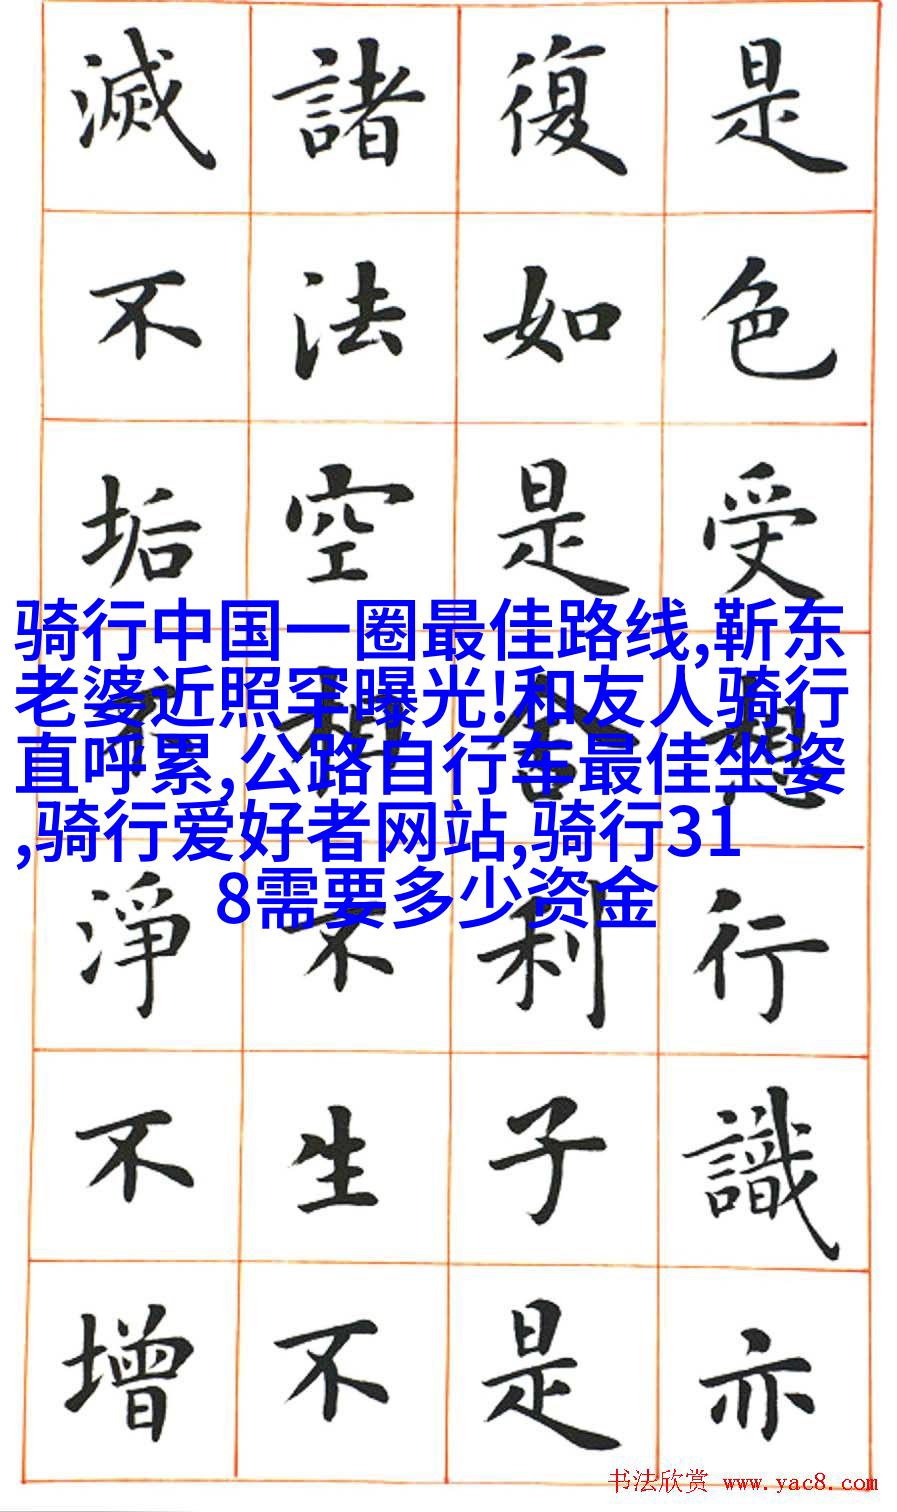 是色受想行識亦
復如是舍利子是
諸法空相不生不
滅不垢不淨不增
骑行中国一圈最佳路线,靳东
老婆近照罕曝光!和友人骑行
直呼累,公路自行车最佳坐姿
,骑行爱好者网站,骑行31
8需要多少资金
书法欣赏 www.yac8.com